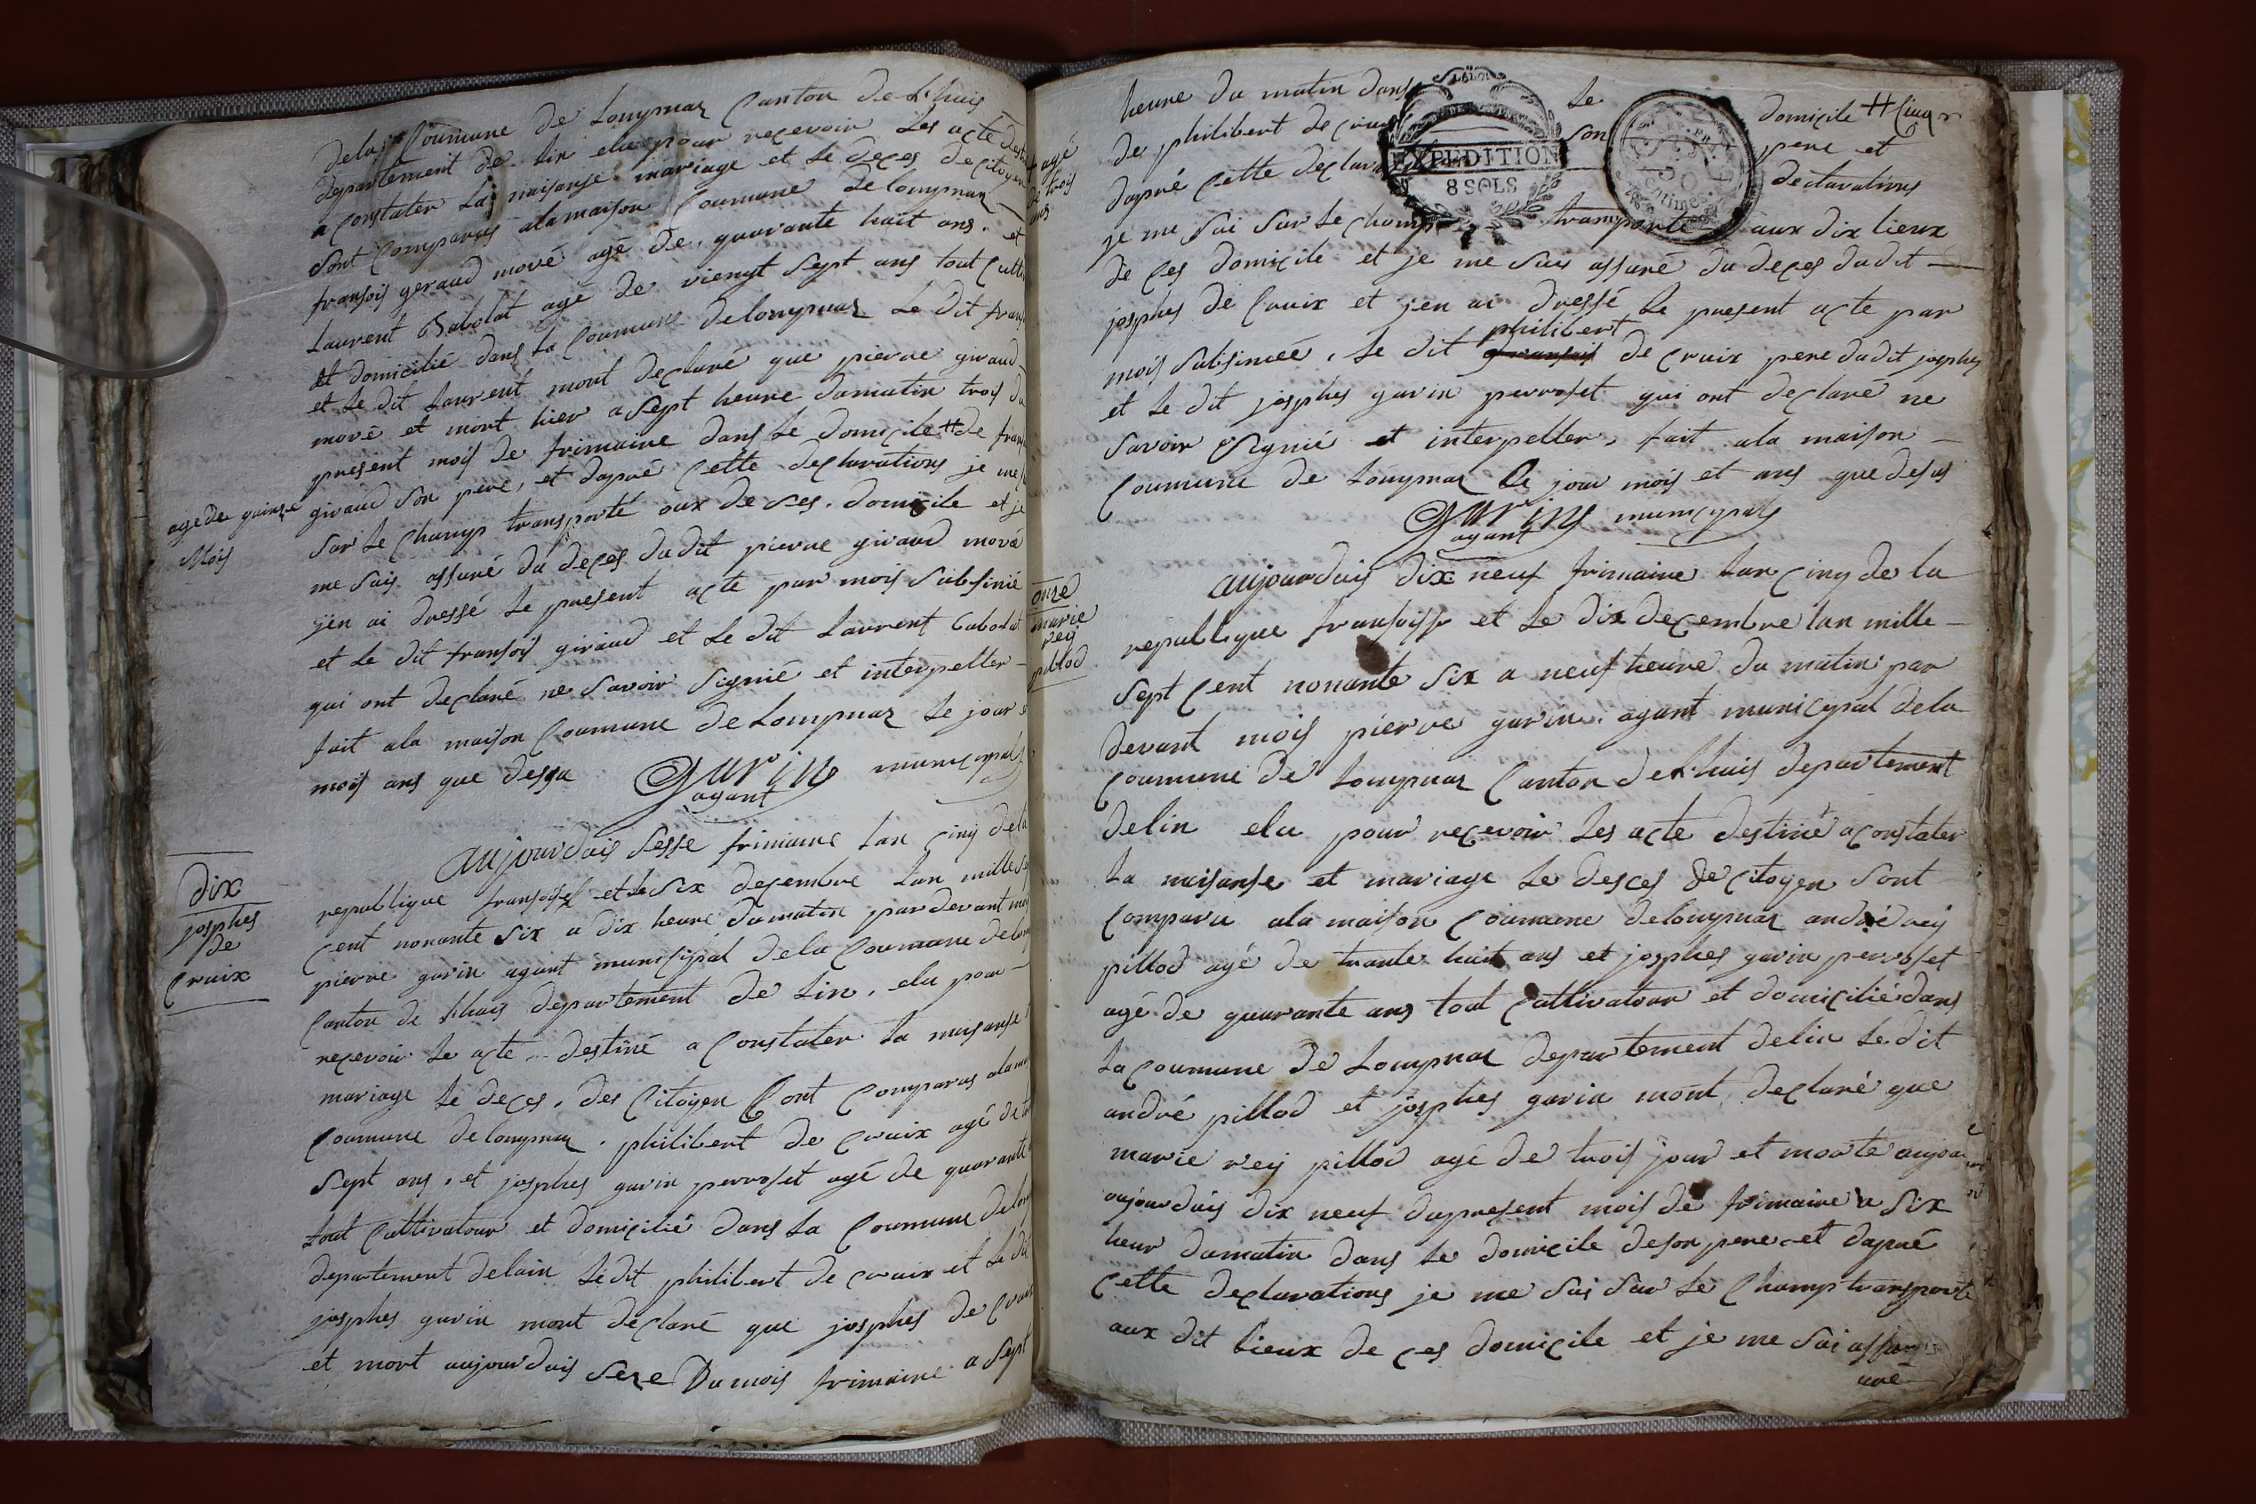 dela Coumune de Lompnaz Canton de Lhuis
departement de Lin elu pour recevoir Les acte
a constater La naisanse mariage et Le deces de citoyen
sont Comparus ala maison Coumune delompnaz
fransois geraud mové agé de quarante huit ans. et
Laurent Cabolat agé de viengt sept ans tout
et domicilié dans La Coumune delompnaz Le dit
et Le dit Laurent mont declaré que pierre giraud
mové et mort hier a sept heure dumatin trois du
present mois de frimaire dans Le domicile # de
giraud son pere, et dapré cette declarations je me
agé de quinze
Mois
sur Le Champ transporté aux de ces. domicile et je
me suis assuré du deces dudit pierre giraud mové
jen ai dressé Le present acte par mois subsinié
et Le dit fransois giraud et Le dit Laurent Cabolat
qui ont declaré ne savoir signié et interpeller
fait ala maison Coumune de Lompnaz Le jour
mois ans que dessu Gurin municypal
agant
dix
josphes
de
Cruix
aujourduis sesse frimaire Lan cinq dela
republique et Le six desembre Lan mille
cent nonante six a dix heure dumatin par devant
pierre gurin agant municipal dela Coumune
Canton de Lhuis departement de Lin. elu pour
recevoir Le acte destiné a constater La naisanse
mariage Le deces. des Citoyen sont Comparus
Coumune delompnaz. philibert de Cruix agé de
sept ans. et josphes gurin perroset agé de quarante
tout Cultivatour et domicilié dans La Coumune
departement delain Ledit philibert de cruix et Le dit
josphes gurin mont declaré que josphes de Cruix
et mort aujourduis seze Du mois frimaire a sept
agé
de trois
ans
heure du matin dans Le domicile #
de philibert de cruix son pere et
dapré cette declarations
je me sui sur Le Champ tramporté aux dix lieux
de ces domicile et je me suis assuré du deces dudit
josphes de Cruix et jen ai dressé Le present acte par
philibert
mois subsinieé, Le dit de cruix pere dudit josphes
et Le dit josphes gurin perroset qui ont declaré ne
savoir signié et interpeller, fait ala maison
Coumune de Lompnaz Le jour mois et ans que desus
Gurin municypal
agant
onze
marie
rey
pillod
aujourduis dix neuf frimaire Lan cinq de La
republique et Le dix decembre Lan mille
sept cent nonante six a neuf heure du matin par
devant mois pierre gurin. agant municypal dela
Coumune de Lompnaz Canton de Lhuis departement
delin elu pour recevoir Les acte destiné a constater
La naisanse et mariage Le desces de citoyen sont
Comparu ala maison Coumune delompnaz andré rey
pillod agé de trante huit ans et josphes gurin perroset
agé de quarante ans tout Cultivatour et domicilié dans
La Coumune de Lompnaz departement delin Le dit
andré pillod et josphes gurin mont declaré que
marie rey pillod agé de trois jour et morte
aujourduis dix neuf dupresent mois de frimaire a six
heur dumatin dans Le domicile deson pere et dapré
cette declarations je me sui sur Le Champ transporté
aux dit lieux de ces domicile et je me sui
EXPEDITION
8 SOLS